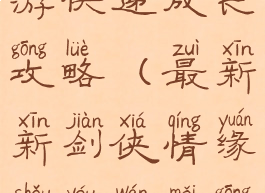 游快速成长
gōng lüè zuì xīn
攻略(最新
xīn jiàn xiá qíng yuán
新剑侠情缘
shǒu yóu wán měi gōng